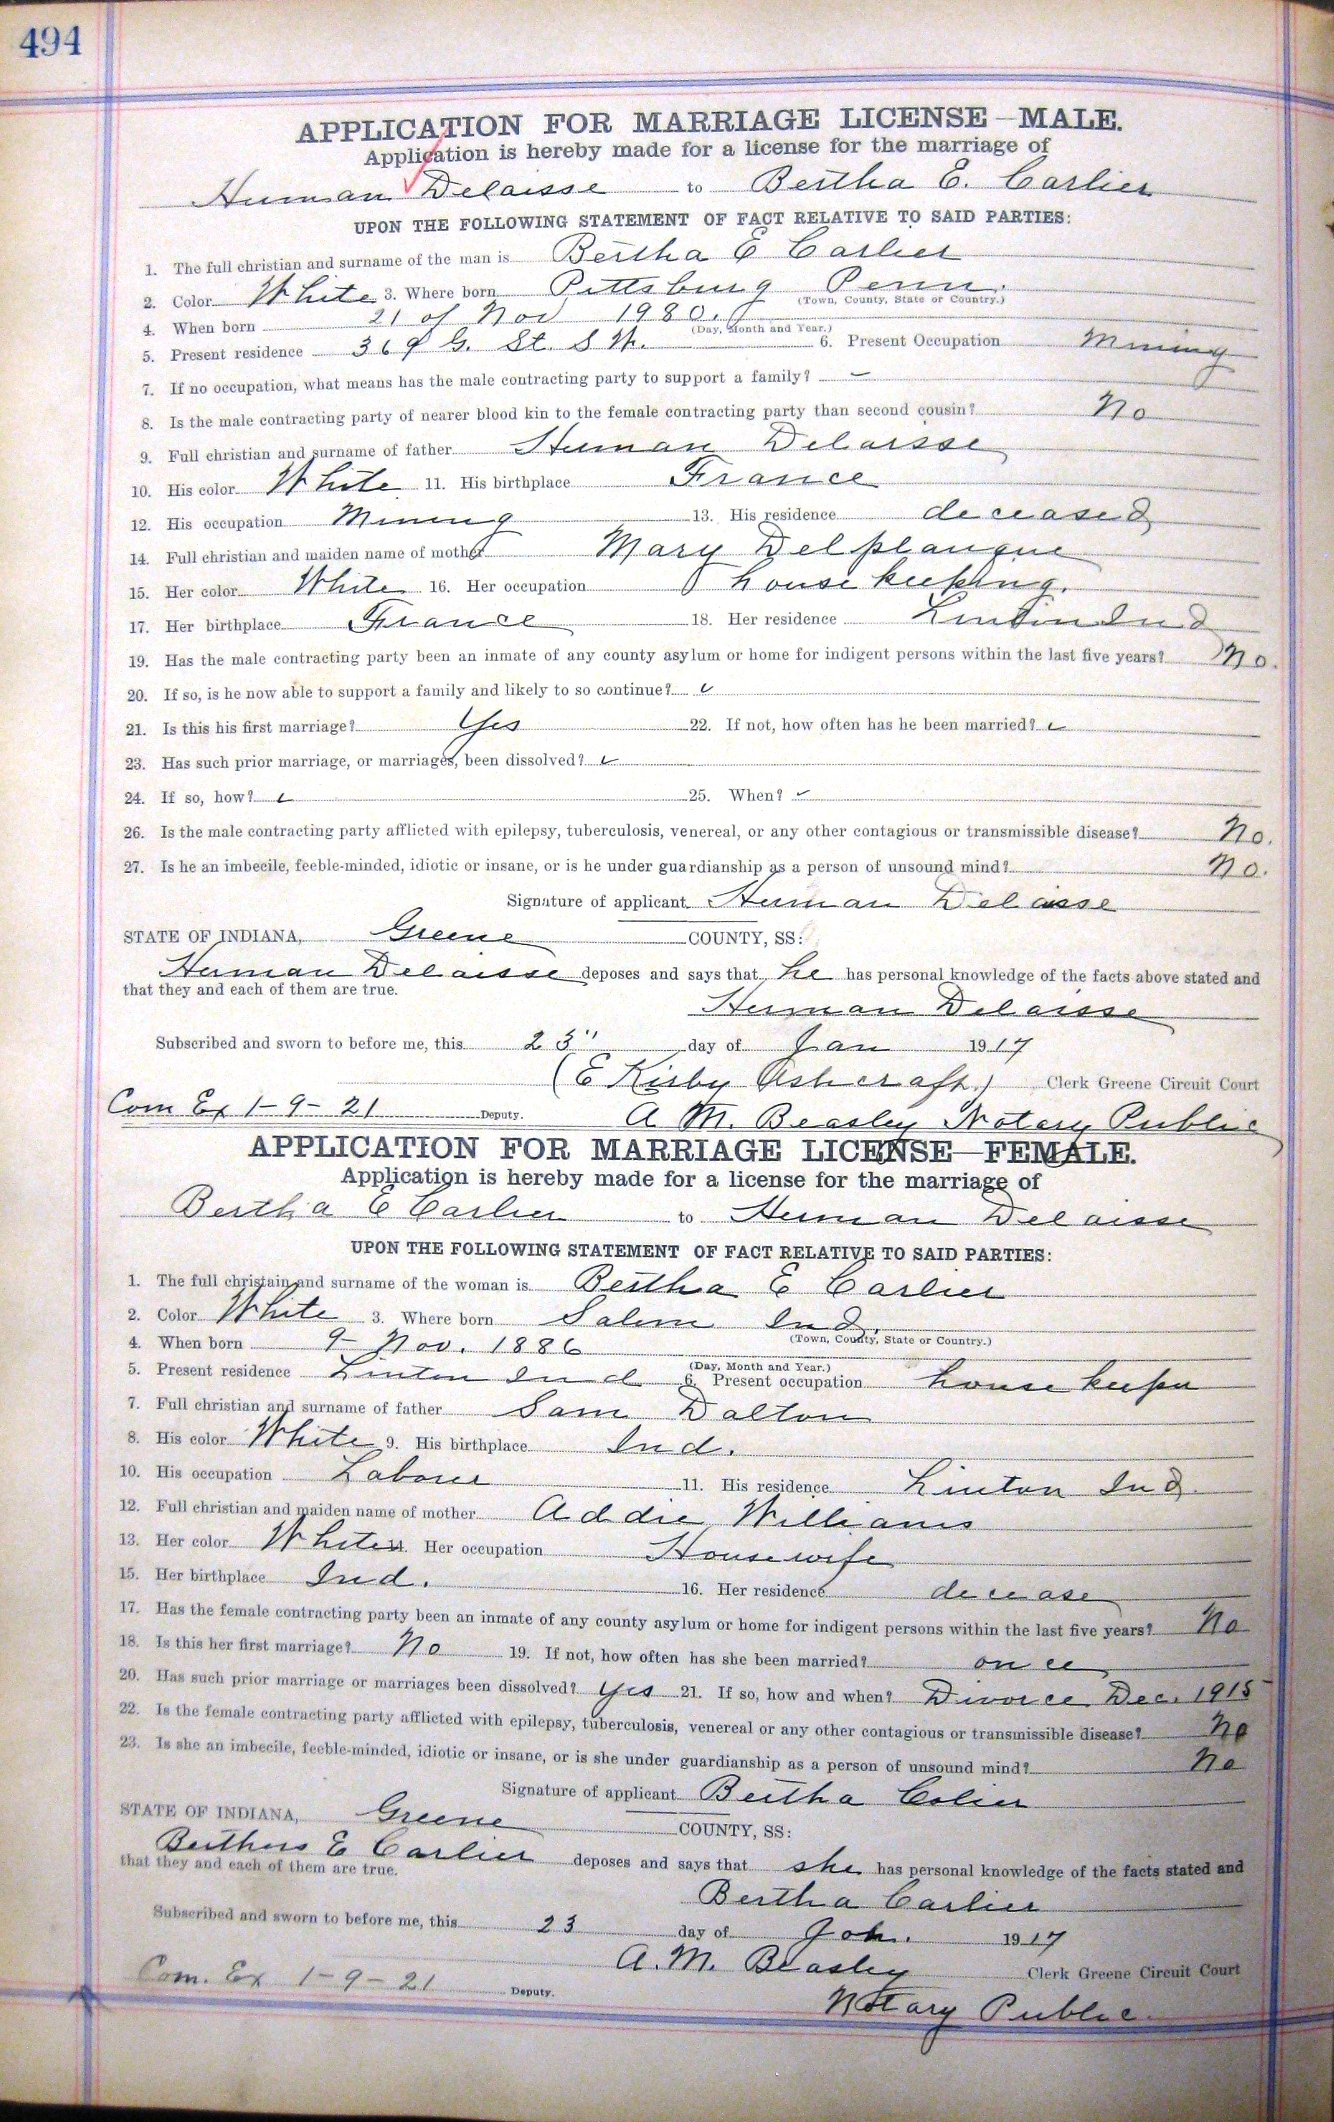 494
APPLICATION FOR MARRIAGE LICENSE—MALE.
Application is hereby made for a license for the marriage of
Herman Delaisse to Bertha E. Carlier
UPON THE FOLLOWING STATEMENT OF FACT RELATIVE TO SAID PARTIES:
1. The full christian and surname of the man is Bertha E Carlier
2. Color White 3. Where born Pittsburg Penn.
(Town, County, State or Country.)
4. When born 21 of Nov 1980.
(Day, Month and Year.)
5. Present residence 369 G. St. S W. 6. Present Occupation Mining
7. If no occupation, what means has the male contracting party to support a family? —
8. Is the male contracting party of nearer blood kin to the female contracting party than second cousin? No
9. Full christian and surname of father Herman Delaisse
10. His color White 11. His birthplace France
12. His occupation Mining 13. His residence deceased
14. Full christian and maiden name of mother Mary Delplanque
15. Her color White 16. Her occupation house keeping.
17. Her birthplace France 18. Her residence Linton Ind
19. Has the male contracting party been an inmate of any county asylum or home for indigent persons within the last five years? No.
20. If so, is he now able to support a family and likely to so continue? ✓
21. Is this his first marriage? Yes 22. If not, how often has he been married? ✓
23. Has such prior marriage, or marriages, been dissolved? ✓
24. If so, how? ✓ 25. When? ✓
26. Is the male contracting party afflicted with epilepsy, tuberculosis, venereal, or any other contagious or transmissible disease? No.
27. Is he an imbecile, feeble-minded, idiotic or insane, or is he under guardianship as a person of unsound mind? No.
Signature of applicant Herman Delaisse
STATE OF INDIANA, Greene COUNTY, SS:
Herman Delaisse deposes and says that he has personal knowledge of the facts above stated and
that they and each of them are true.
Herman Delaisse
Subscribed and sworn to before me, this 23" day of Jan 1917
(E Kirby Ashcraft.) Clerk Greene Circuit Court
Com Ex 1-9-21 Deputy. A. M. Beasley Notary Public
APPLICATION FOR MARRIAGE LICENSE—FEMALE.
Application is hereby made for a license for the marriage of
Bertha E Carlier to Herman Delaisse
UPON THE FOLLOWING STATEMENT OF FACT RELATIVE TO SAID PARTIES:
1. The full christain and surname of the woman is Bertha E Carlier
2. Color White 3. Where born Salem Ind.
(Town, County, State or Country.)
4. When born 9 - Nov. 1886
(Day, Month and Year.)
5. Present residence Linton Ind 6. Present occupation house keeper
7. Full christian and surname of father Sam Dalton
8. His color White 9. His birthplace Ind.
10. His occupation Laborer 11. His residence Linton Ind.
12. Full christian and maiden name of mother Addie Williams
13. Her color White 14. Her occupation Housewife
15. Her birthplace Ind. 16. Her residence decease
17. Has the female contracting party been an inmate of any county asylum or home for indigent persons within the last five years? No
18. Is this her first marriage? No 19. If not, how often has she been married? once
20. Has such prior marriage or marriages been dissolved? Yes 21. If so, how and when? Divorce Dec. 1915
22. Is the female contracting party afflicted with epilepsy, tuberculosis, venereal or any other contagious or transmissible disease? No
23. Is she an imbecile, feeble-minded, idiotic or insane, or is she under guardianship as a person of unsound mind? No
Signature of applicant Bertha Colier
STATE OF INDIANA, Greene COUNTY, SS:
E Carlier deposes and says that she has personal knowledge of the facts stated and
that they and each of them are true.
Bertha Carlier
Subscribed and sworn to before me, this 23 day of Jan. 1917
A. M. Beasley Clerk Greene Circuit Court
Com. Ex 1-9-21 Deputy.
Notary Public